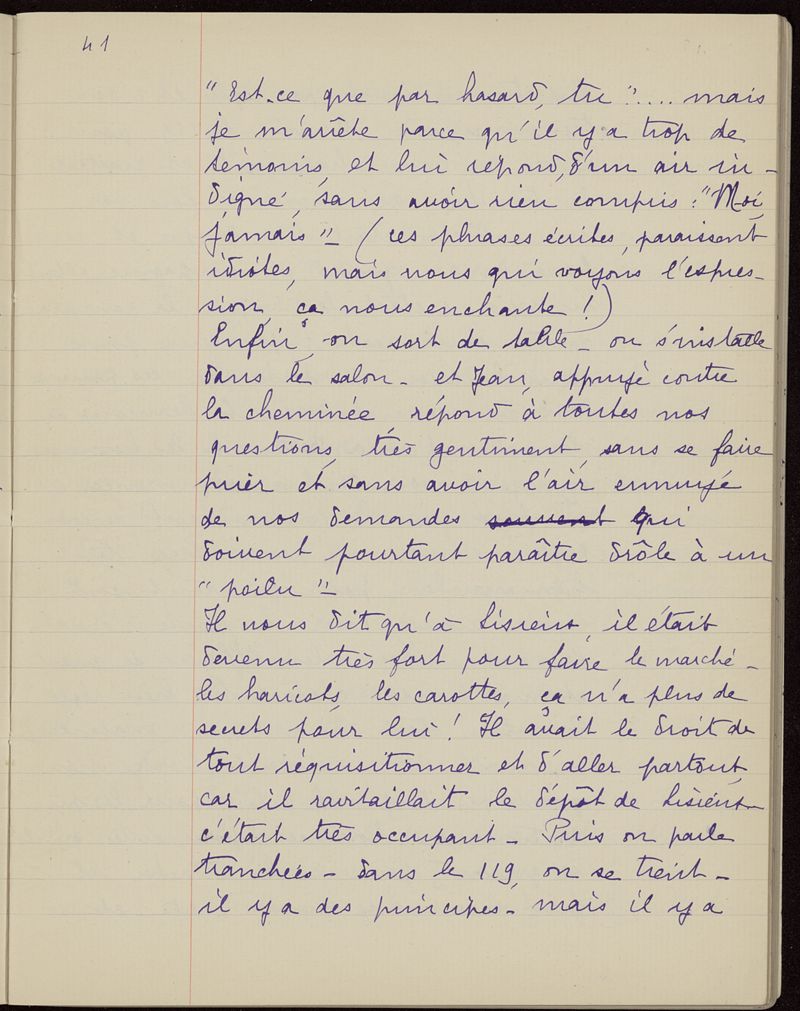 41
"Est-ce que par hasard, tu ?.... mais
je m'arrête parce qu'il y a trop de
témoins, et lui répond, d'un air in-
digné, sans avoir rien compris : "Moi,
jamais" _ (ces phrases écrites, paraissent
idiotes, mais nous qui voyons l'espres-
sion, ça nous enchante !)
Enfin, on sort de table _ on s'installe
dans le salon _ et Jean, appuyé contre
la cheminée, répond à toutes nos
questions, très gentiment, sans se faire
prier et sans avoir l'air ennuyé
de nos demandes qui
doivent pourtant paraître drôle à un
"poilu" _
Il nous dit qu'à Lisieux, il était
devenu très fort pour faire le marché _
les haricots, les carottes, ça n'a plus de
secrets pour lui ! Il avait le droit de
tout réquisitionner et d'aller partout,
car il ravitaillait le dépôt de Lisieux _
c'était très occupant _ Puis on parle
tranchées _ dans le 119, on se tient _
il y a des principes _ mais il y a